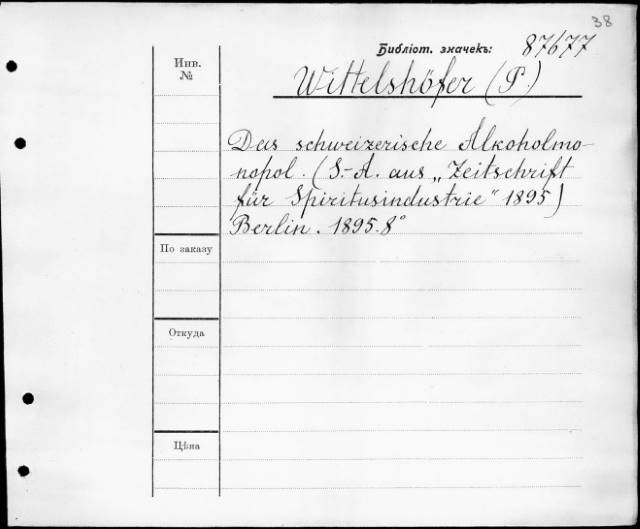 38
Библіот. значекъ: 87677
Инв.
№
Wittelshöfer (P.)
Das schweizerische Alkoholmo-
nopol. (S.-A. aus „Zeitschrift
für Spiritusindustrie" 1895)
Berlin. 1895. 8°
По заказу
Откуда
Цѣна